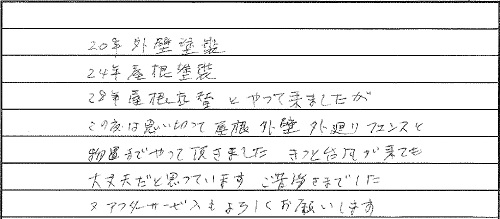 20年 外壁塗装
24年 屋根塗装
28年 屋根葺替 とやって来ましたが
この度は思い切って 屋根 外壁 外廻り フェンスと
物置までやって頂きました きっと台風が来ても
大丈夫だと思っています ご苦労さまでした
アフターサービスもよろしくお願いします